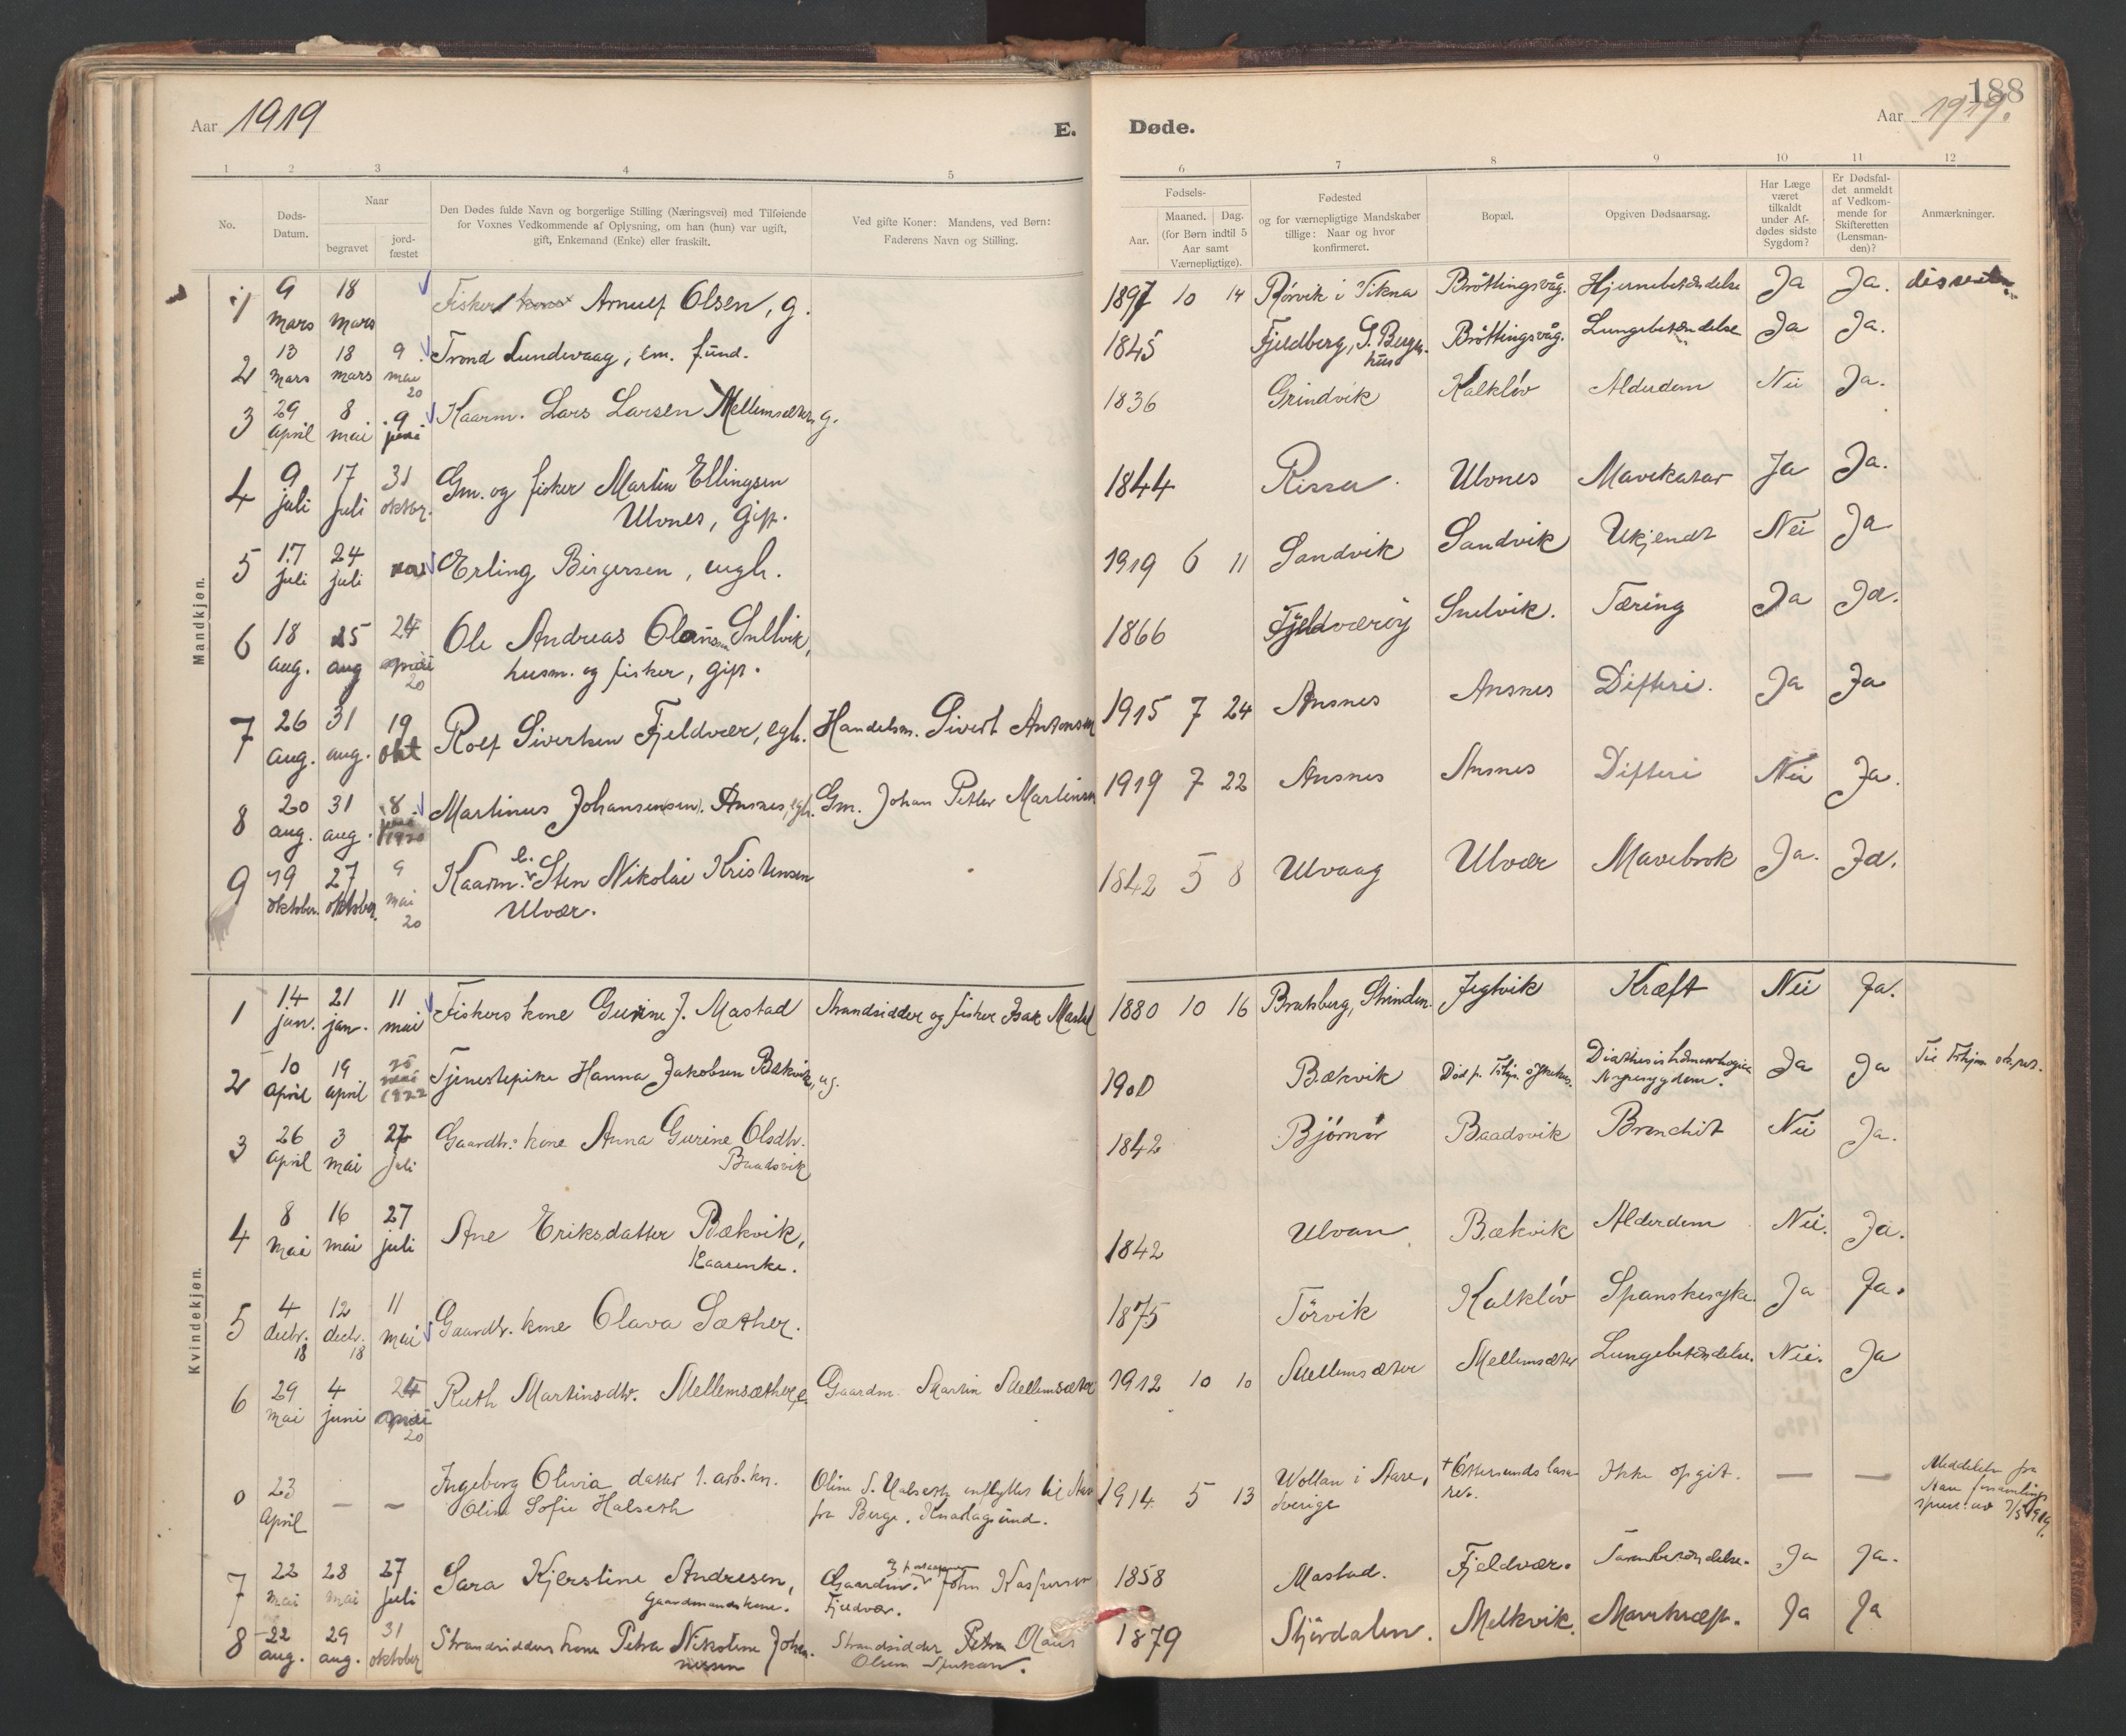 188
Aar 1919
E. Døde.
Aar 1919.
1 2 3 4 5 6 7 8 9 10 11 12
No.
Døds-
Datum.
Naar
begravet
jord-
fæstet
Den Dødes fulde Navn og borgerlige Stilling (Næringsvei) med Tilføiende
for Voxnes Vedkommende af Oplysning, om han (hun) var ugift,
gift, Enkemand (Enke) eller fraskilt.
Ved gifte Koner: Mandens, ved Børn:
Faderens Navn og Stilling.
Fødsels-
Aar.
Maaned. Dag.
(for Børn indtil 5
Aar samt
Værnepligtige).
Fødested
og for værnepligtige Mandskaber
tillige: Naar og hvor
konfirmeret.
Bopæl.
Opgiven Dødsaarsag.
Har Læge
været
tilkaldt
under Af-
dødes sidste
Sygdom?
Er Dødsfal-
det anmeldt
af Vedkom-
mende for
Skifteretten
(Lensman-
den)?
Anmærkninger.
Mandkjøn.
1 9 mars 18 mars Fisker Arnulf Olsen, g. 1897 10 14 Rørvik i Vikna Bröttingsvåg. Hjernebetændelse Ja Ja. dissenter
2 13 mars 18 mars 9 mai 20 Trond Lundevaag, em. fund. 1845 Fjeldberg, S. Bergenhus Bröttingsvåg. Lungebetændelse Ja Ja.
3 29 april 8 mai 9 juni Kaarm. Lars Larsen Mellemsæter, g. 1836 Grindvik Kalkløv Alderdom Nei Ja.
4 9 juli 17 juli 31 oktbr. Gm. og fisker Martin Ellingsen
Ulvnes, gift. 1844 Rissa Ulvnes Mavekatar Ja Ja.
5 17 juli 24 juli Erling Birgersen, uegh. 1919 6 11 Sandvik Sandvik Ukjendt Nei Ja
6 18 aug. 25 aug 24 mai 20 Ole Andreas Snelvik,
husm. og fisker, gift. 1866 Fjeldværøy Snelvik. Tæring Ja Ja.
7 26 aug. 31 aug. 19 okt Rolf Sivertsen Fjeldvær, egh. Handelsm. Sivert Antonsen 1915 7 24 Ansnes Ansnes Difteri. Ja Ja
8 20 aug. 31 aug. 8 1920 Martinus Johansen Ansnes, egh. Gm. Johan Petter Martinsen 1919 7 22 Ansnes Ansnes Difteri Nei Ja.
9 19 oktober. 27 oktober. 9 mai 20 Kaarm. e. Sten Nikolai Kristensen
Ulvær. 1842 5 8 Ulvaag Ulvær Mavebrok Ja. Ja.
Kvindekjøn.
1 14 jan. 21 jan. 11 mai Fiskers kone Gurine J. Mastad Strandsidder og fisker Isak Mastad 1880 10 16 Bratsberg, Strinden. Jegtvik Kræft Nei Ja.
2 10 april 19 april 1922 Tjenestepike Hanna Jakobsen Bækvik, ug. 1900 Bækvik Død p. Trhjm. sykehus. Diathesis hæmorrhagica Ja Ja
3 26 april 3 mai 27 juli Gaardbr. kone Anna Gurine Olsdtr.
Baadsvik 1842 Bjørnør Baadsvik Bronchit Nei Ja.
4 8 mai 16 mai 27 juli Ane Eriksdatter Bækvik,
Kaarenke. 1842 Ulvan Bækvik Alderdom Nei. Ja.
5 4 decbr. 18 12 decbr. 18 11 mai Gaardbr. kone Olava Sæther. 1875 Törvik Kalkløv Spanskesyke. Ja Ja.
6 29 mai 4 juni 24 mai 20 Ruth Martinsdtr. Mellemsæther, e. Gaardm. Martin Mellemsæter 1912 10 10 Mellemsæter Mellemsæter Lungebetændelse. Nei. Ja
0 23 April — — Ingeborg Olivia datter t. arb.kv.
Oline Sofie Halseth Oline S. Halseth
fra Berge, Knarlagsund. 1914 5 13 Wollan i Aare,
Sverige + Östersunds lasaret. Ikke opgit. — — Meddelelse fra
7 22 mai 28 mai 27 juli Sara Kjerstine Andresen,
Gaardmandskone. Gaardm. John Kaspersen
Fjeldvær. 1858 Mastad. Fjeldvær. Tarmbetændelse. Ja Ja.
8 22 aug. 29 aug. 31 oktober Strandsidders kone Petra Nikoline Johan-
nessen Strandsidder Olaus
Olsen 1879 Stjørdalen. Melkvik. Mavekræft. Ja Ja